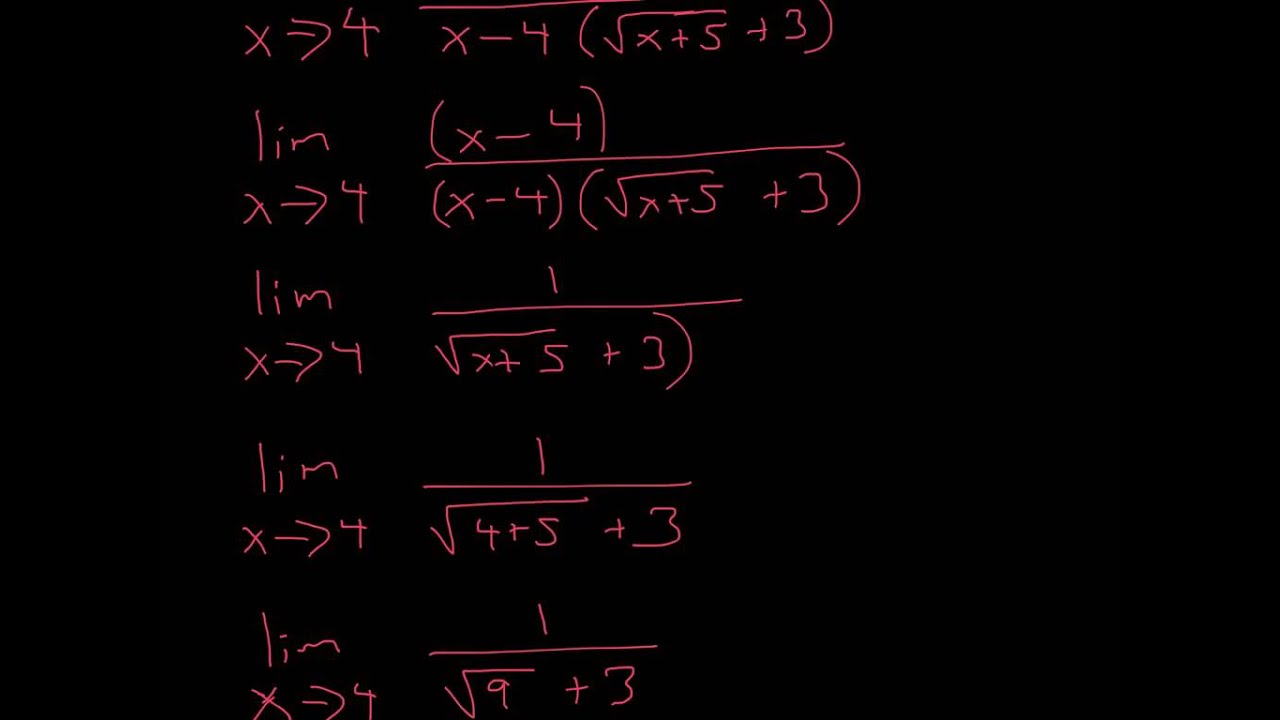 x→4 x-4 (√x+5 +3)
lim (x-4)
x→4 (x-4)(√x+5 +3)
lim 1
x→4 √x+5 +3)
lim 1
x→4 √4+5 +3
lim 1
x→4 √9 +3